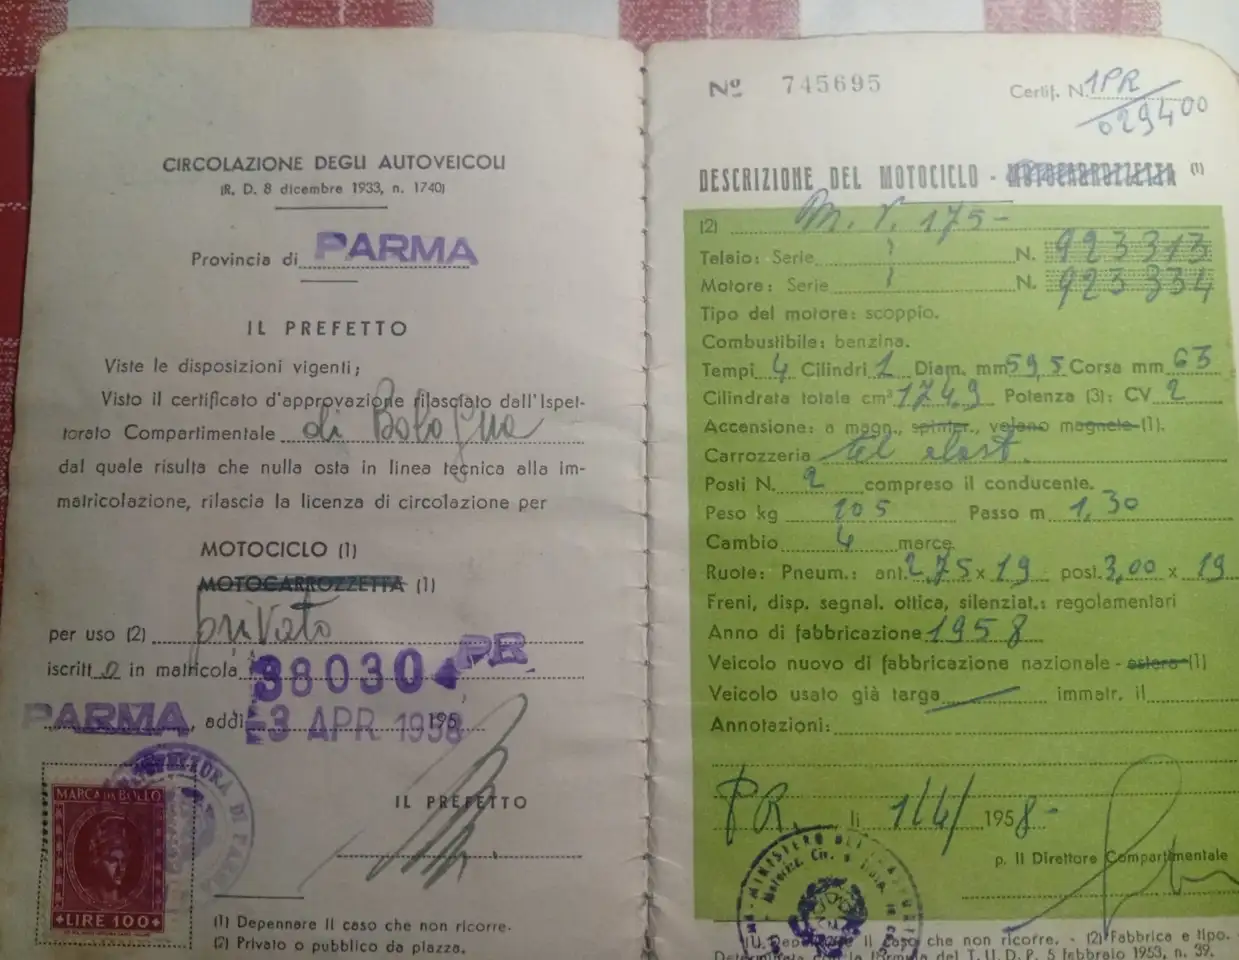 CIRCOLAZIONE DEGLI AUTOVEICOLI
(R. D. 8 dicembre 1933, n. 1740)
Provincia di PARMA
IL PREFETTO
Viste le disposizioni vigenti;
Visto il certificato d'approvazione rilasciato dall'Ispet-
torato Compartimentale di Bologna
dal quale risulta che nulla osta in linea tecnica alla im-
matricolazione, rilascia la licenza di circolazione per
MOTOCICLO (1)
MOTOCARROZZETTA (1)
per uso (2) privato
iscritt o in matricola 38030 PR
PARMA, addì 3 APR 1958 195
IL PREFETTO
MARCA DA BOLLO
LIRE 100
(1) Depennare il caso che non ricorre.
(2) Privato o pubblico da piazza.
Nº 745695 Certif. N. 1PR/029400
DESCRIZIONE DEL MOTOCICLO - MOTOCARROZZETTA (1)
(2) M. V. 175-
Telaio: Serie N. 923313
Motore: Serie N. 923334
Tipo del motore: scoppio.
Combustibile: benzina.
Tempi 4 Cilindri 1 Diam. mm 59,5 Corsa mm 63
Cilindrata totale cm³ 174,9 Potenza (3): CV 2
Accensione: a magn., spinter., volano magnete (1).
Carrozzeria tel elast.
Posti N. 2 compreso il conducente.
Peso kg 105 Passo m 1,30
Cambio 4 marce
Ruote: Pneum.: ant. 2,75 x 19 post. 3,00 x 19
Freni, disp. segnal. ottica, silenziat.: regolamentari
Anno di fabbricazione 1958
Veicolo nuovo di fabbricazione nazionale - estera (1)
Veicolo usato già targa immatr. il
Annotazioni:
PR. li 1/4/ 1958-
p. Il Direttore Compartimentale
MINISTERO DEI
(1) Depennare il caso che non ricorre. - (2) Fabbrica e tipo.
formula del T. U. D. P. 5 febbraio 1953, n. 39.